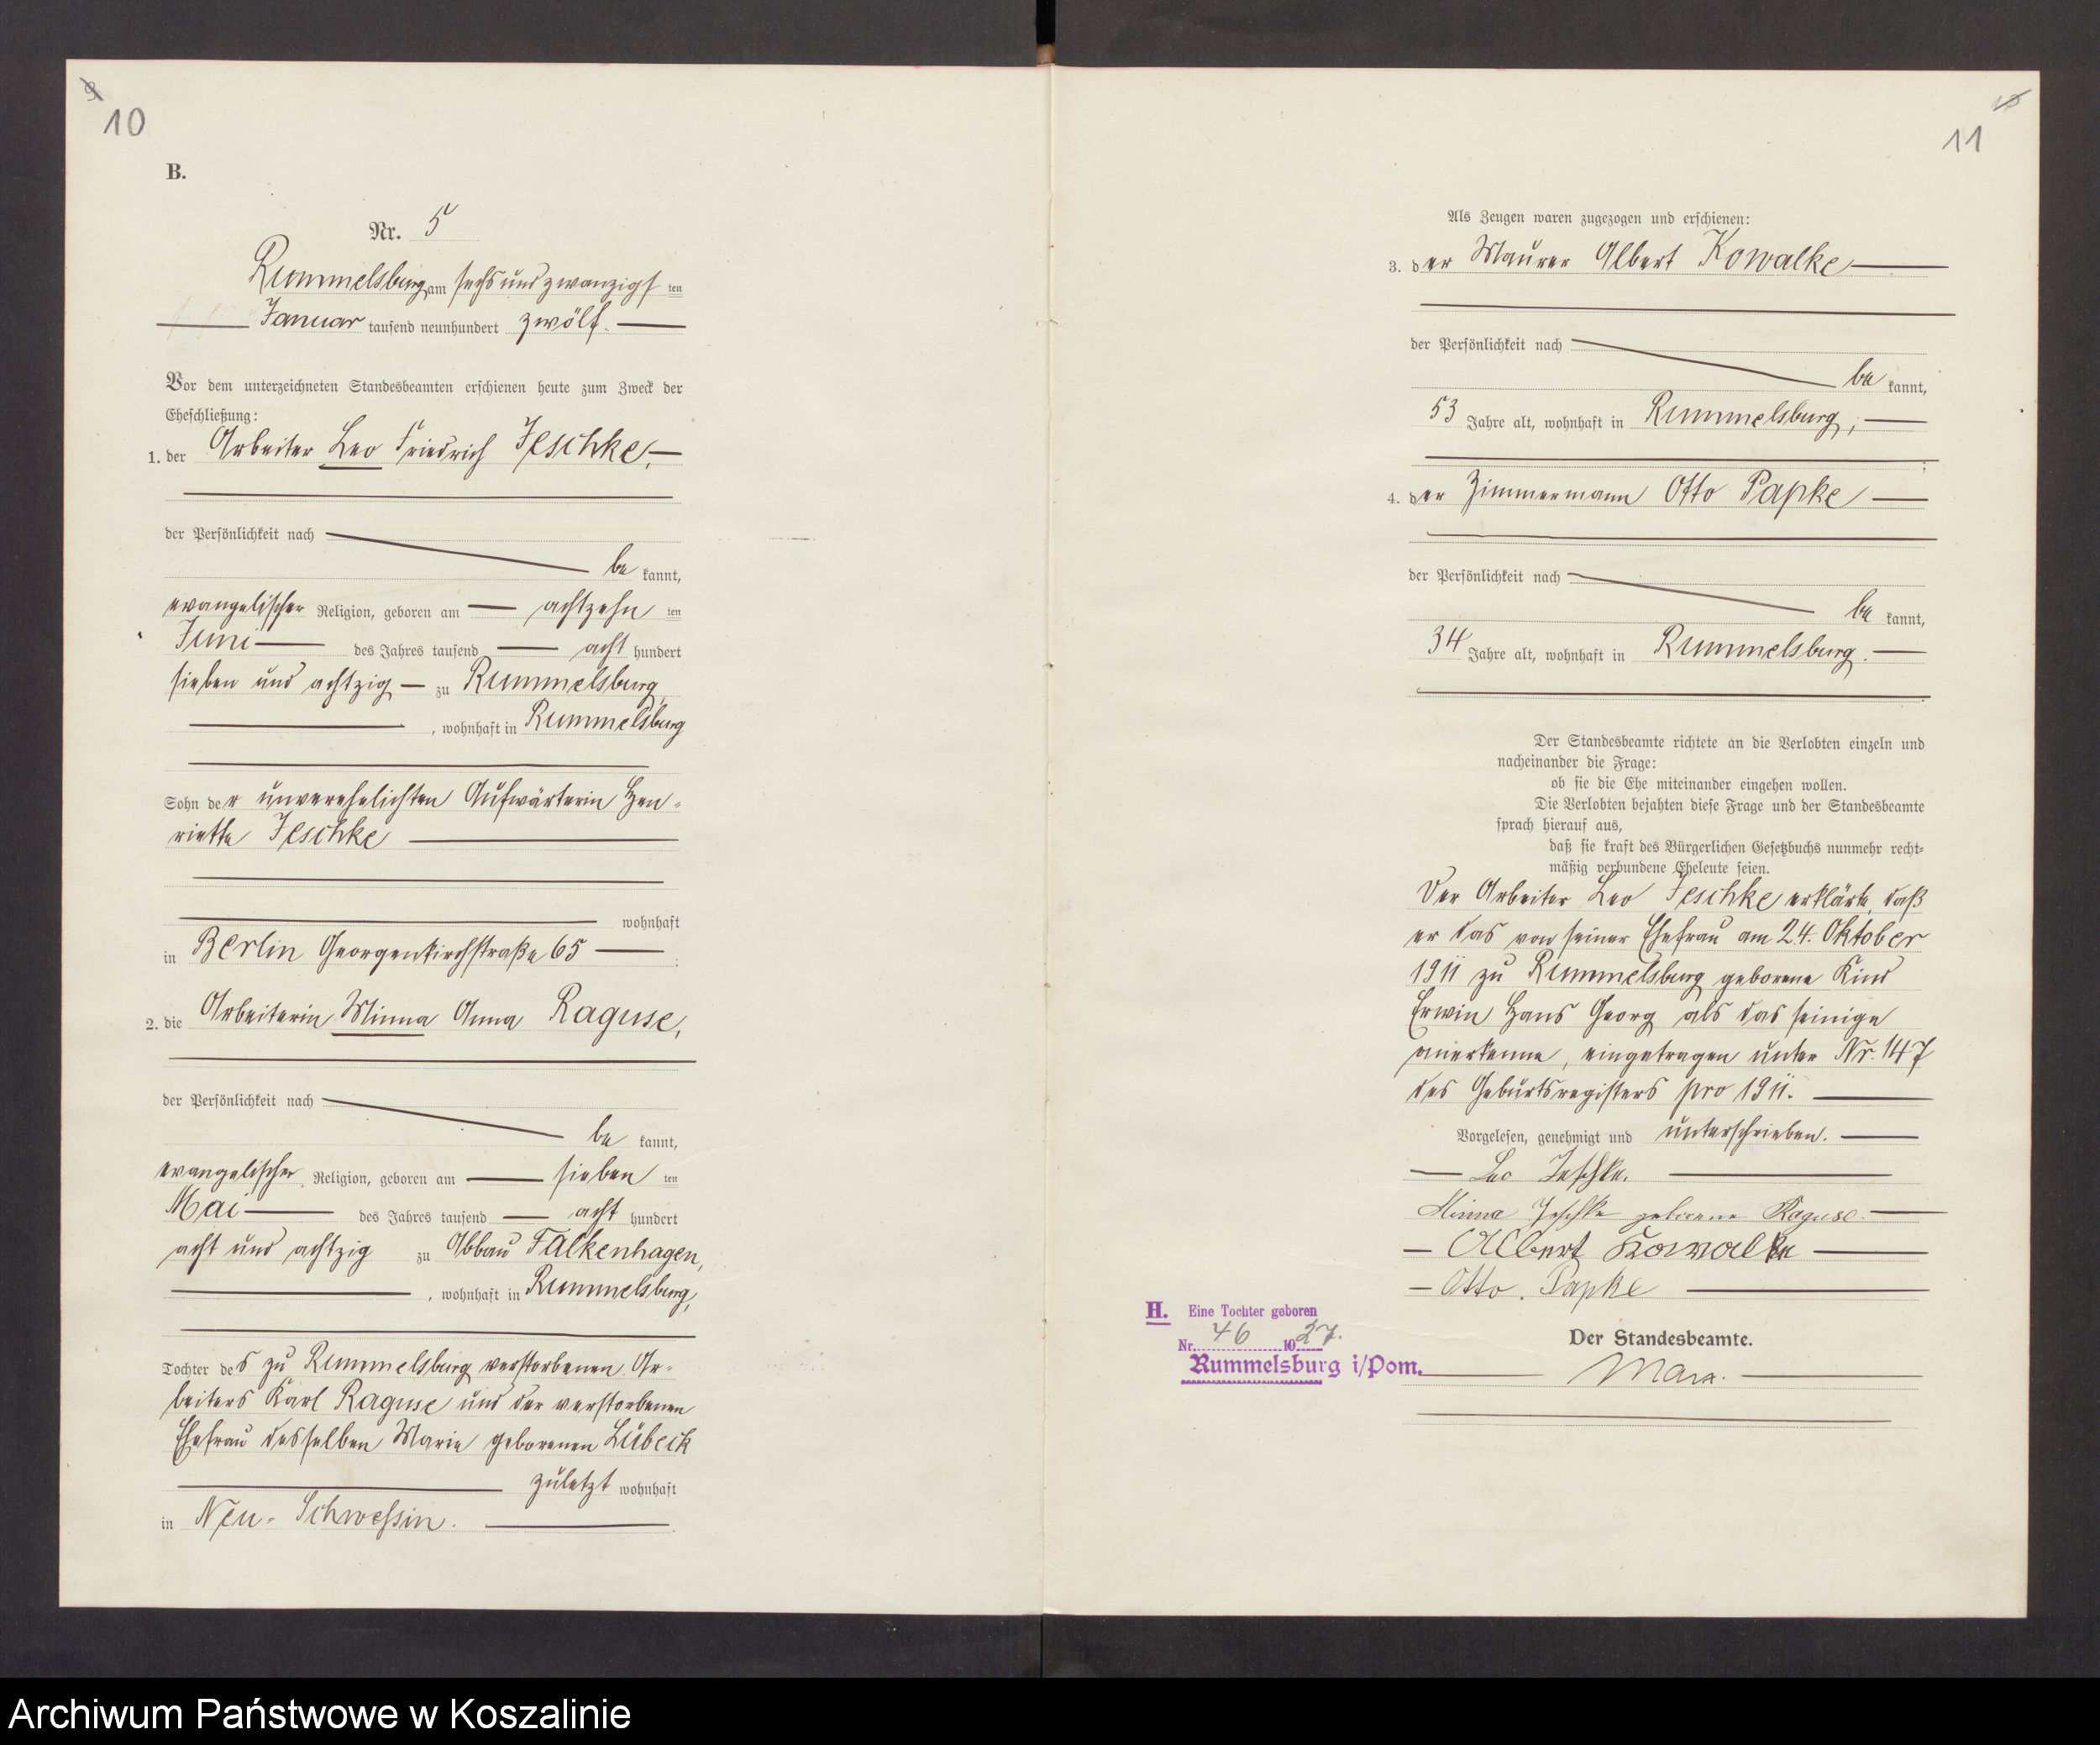 9
10
B.
Nr. 5
Rummelsburg am sechsundzwanzigsten
Januar tausend neunhundert zwölf.
Vor dem unterzeichneten Standesbeamten erschienen heute zum Zweck der
Eheschließung:
1. der Arbeiter Leo Friedrich Jeschke,
der Persönlichkeit nach
bekannt,
evangelischer Religion, geboren am achtzehnten
Juni des Jahres tausend achthundert
sieben und achtzig zu Rummelsburg
, wohnhaft in Rummelsburg
Sohn der unverehelichten Aufwärterin Hen-
riette Jeschke
wohnhaft
in Berlin Georgenkirchstraße 65 ;
2. die Arbeiterin Minna Anna Raguse,
der Persönlichkeit nach
bekannt,
evangelischer Religion, geboren am siebenten
Mai des Jahres tausend achthundert
acht und achtzig zu Abbau Falkenhagen,
, wohnhaft in Rummelsburg,
Tochter des zu Rummelsburg verstorbenen Ar-
beiters Karl Raguse und der verstorbenen
Ehefrau desselben Marie geborenen Lübeck
zuletzt wohnhaft
in Neu-Schwessin.
11
Als Zeugen waren zugezogen und erschienen:
3. der Maurer Albert Kowalke
der Persönlichkeit nach
bekannt,
53 Jahre alt, wohnhaft in Rummelsburg;
4. der Zimmermann Otto Papke
der Persönlichkeit nach
bekannt,
34 Jahre alt, wohnhaft in Rummelsburg.
Der Standesbeamte richtete an die Verlobten einzeln und
nacheinander die Frage:
ob sie die Ehe miteinander eingehen wollen.
Die Verlobten bejahten diese Frage und der Standesbeamte
sprach hierauf aus,
daß sie kraft des Bürgerlichen Gesetzbuchs nunmehr recht-
mäßig verbundene Eheleute seien.
Der Arbeiter Leo Jeschke erklärte, daß
er das von seiner Ehefrau am 24. Oktober
1911 zu Rummelsburg geborene Kind
Erwin Hans Georg als das seinige
anerkenne, eingetragen unter Nr. 147
des Geburtsregisters pro 1911.
Vorgelesen, genehmigt und unterschrieben.
Leo Jeschke.
Minna Jeschke geborene Raguse.
Albert Kowalke
Otto Papke
Der Standesbeamte.
Marx.
H. Eine Tochter geboren
Nr. 46 1927.
Rummelsburg i/Pom.
Archiwum Państwowe w Koszalinie